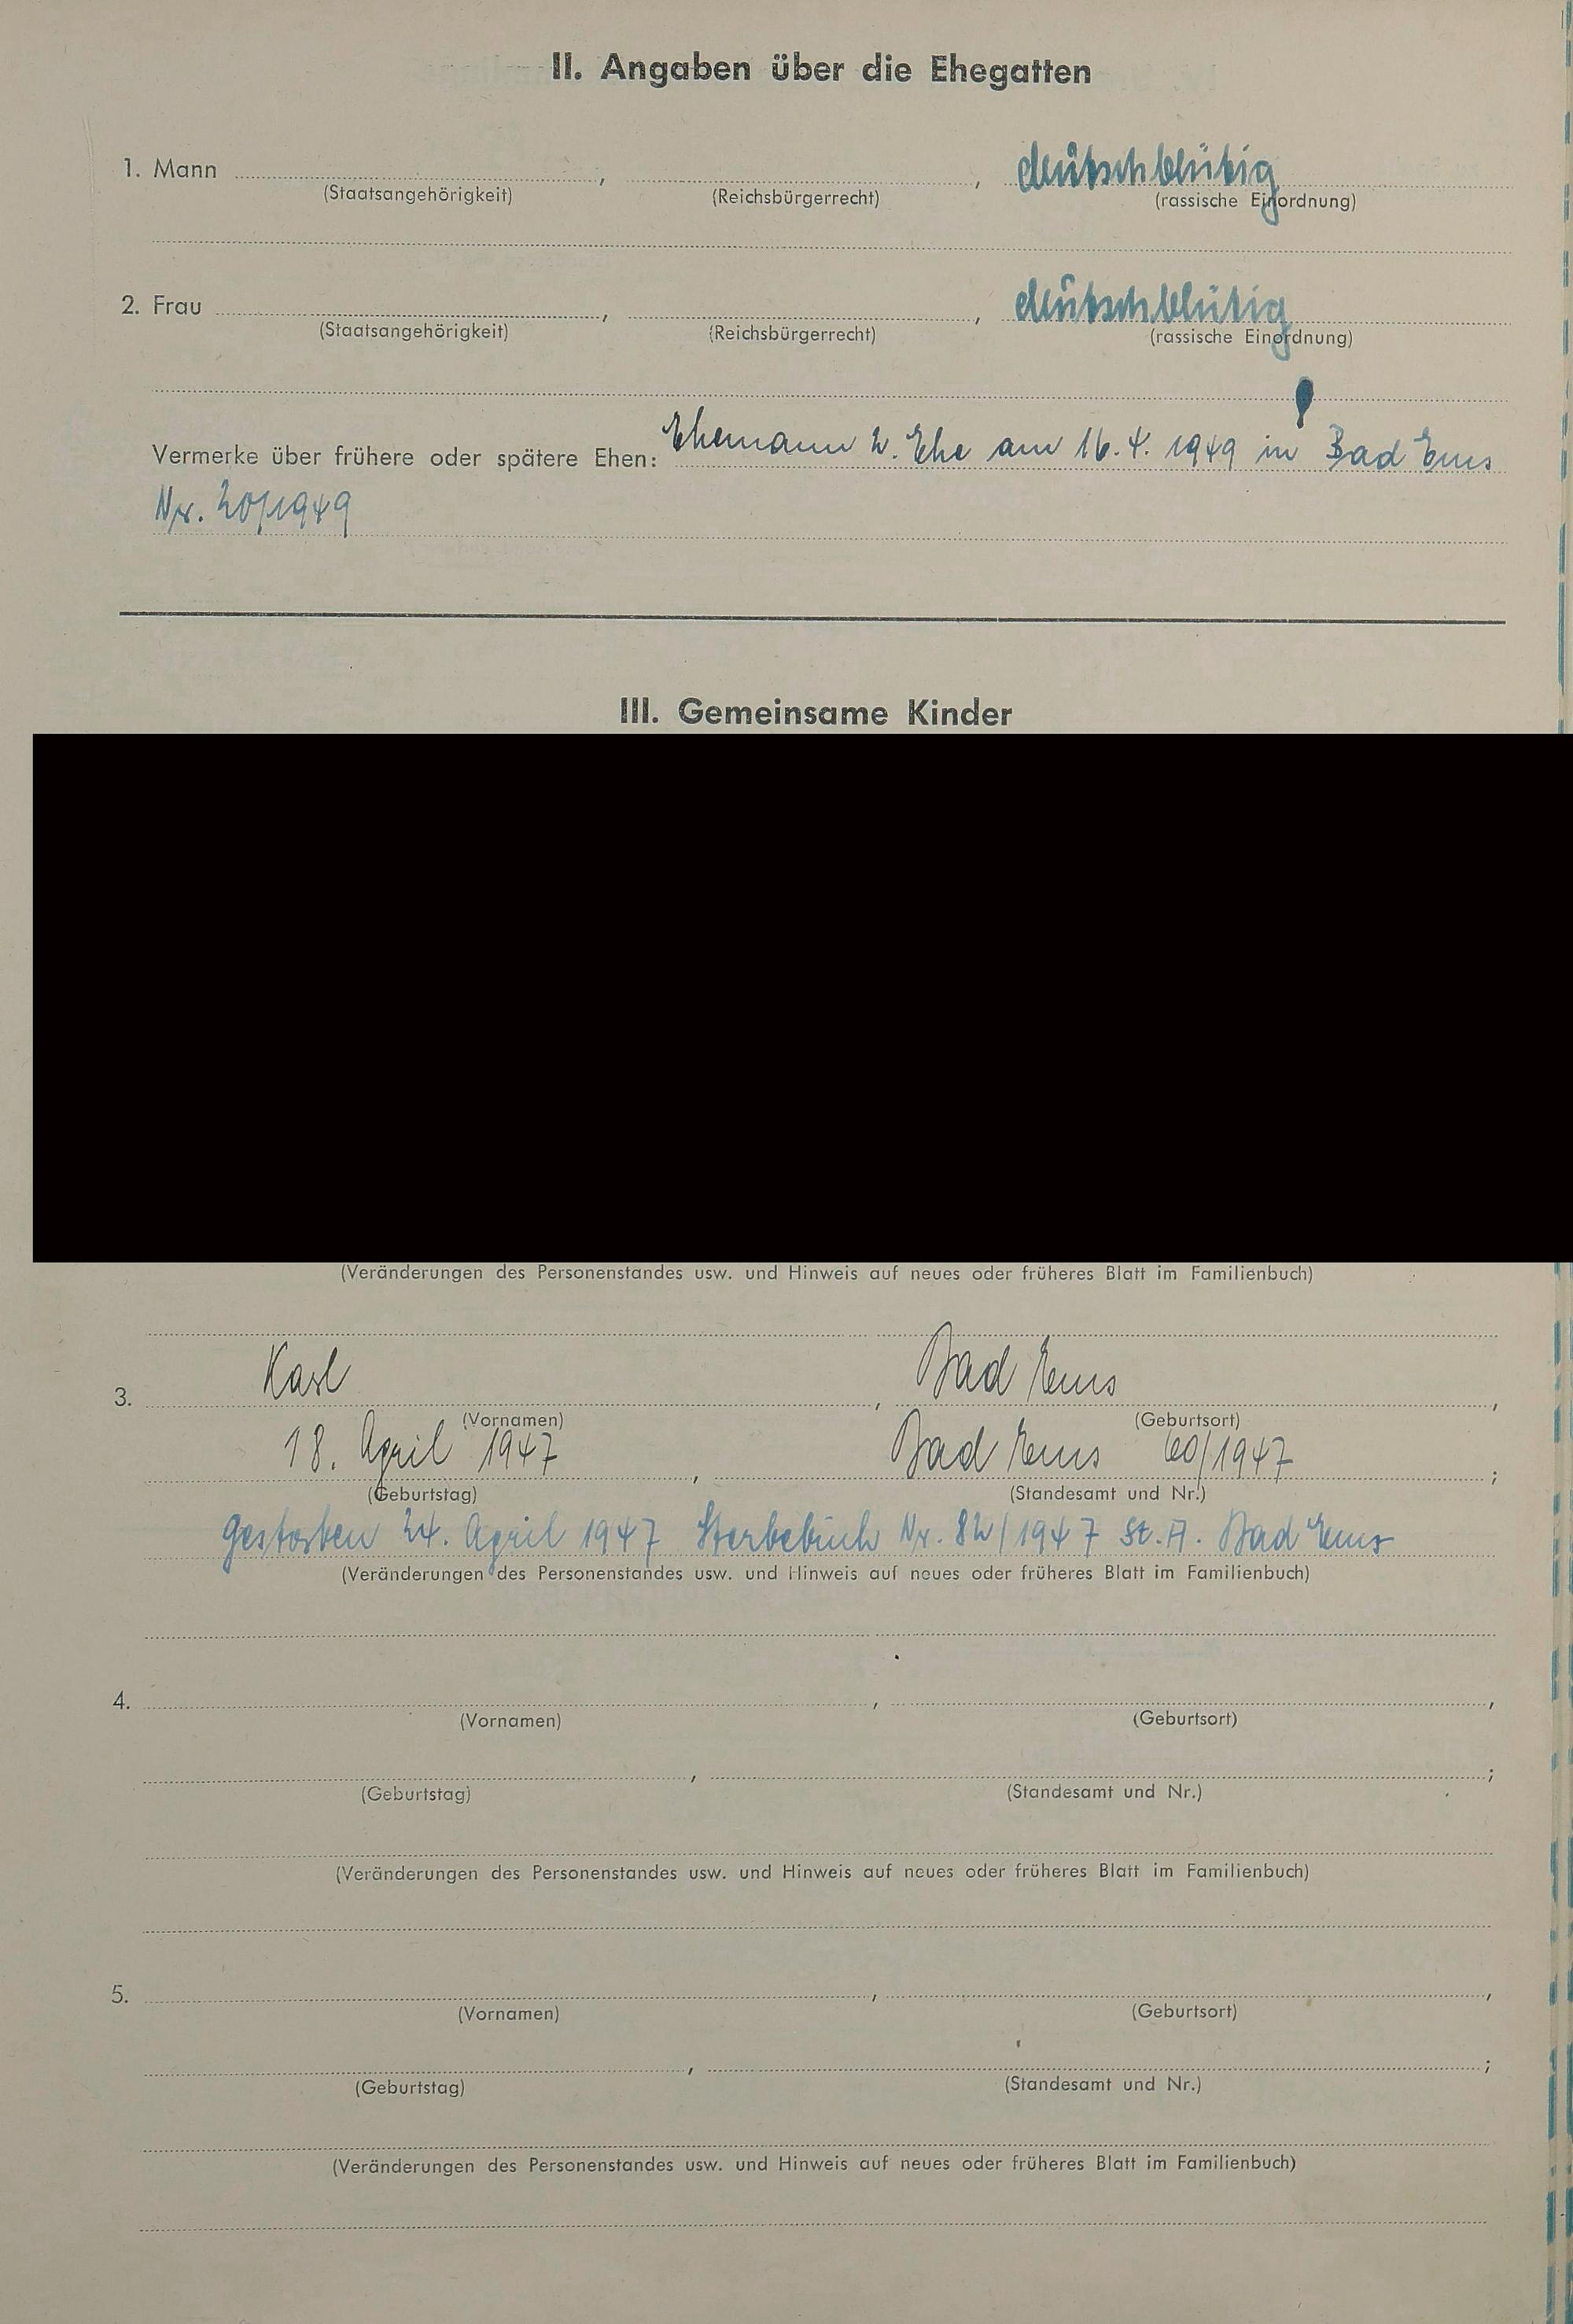 II. Angaben über die Ehegatten
1. Mann , , deutschblütig
(Staatsangehörigkeit) (Reichsbürgerrecht) (rassische Einordnung)
2. Frau , , deutschblütig
(Staatsangehörigkeit) (Reichsbürgerrecht) (rassische Einordnung)
Vermerke über frühere oder spätere Ehen: Ehemann 2. Ehe am 16.4.1949 in Bad Ems
Nr. 20/1949
III. Gemeinsame Kinder
(Veränderungen des Personenstandes usw. und Hinweis auf neues oder früheres Blatt im Familienbuch)
3. Karl , Bad Ems ,
(Vornamen) (Geburtsort)
18. April 1947 , Bad Ems 60/1947 ;
(Geburtstag) (Standesamt und Nr.)
gestorben 24. April 1947 Sterbebuch Nr. 82/1947 St.A. Bad Ems
(Veränderungen des Personenstandes usw. und Hinweis auf neues oder früheres Blatt im Familienbuch)
4. , ,
(Vornamen) (Geburtsort)
, ;
(Geburtstag) (Standesamt und Nr.)
(Veränderungen des Personenstandes usw. und Hinweis auf neues oder früheres Blatt im Familienbuch)
5. , ,
(Vornamen) (Geburtsort)
, ;
(Geburtstag) (Standesamt und Nr.)
(Veränderungen des Personenstandes usw. und Hinweis auf neues oder früheres Blatt im Familienbuch)